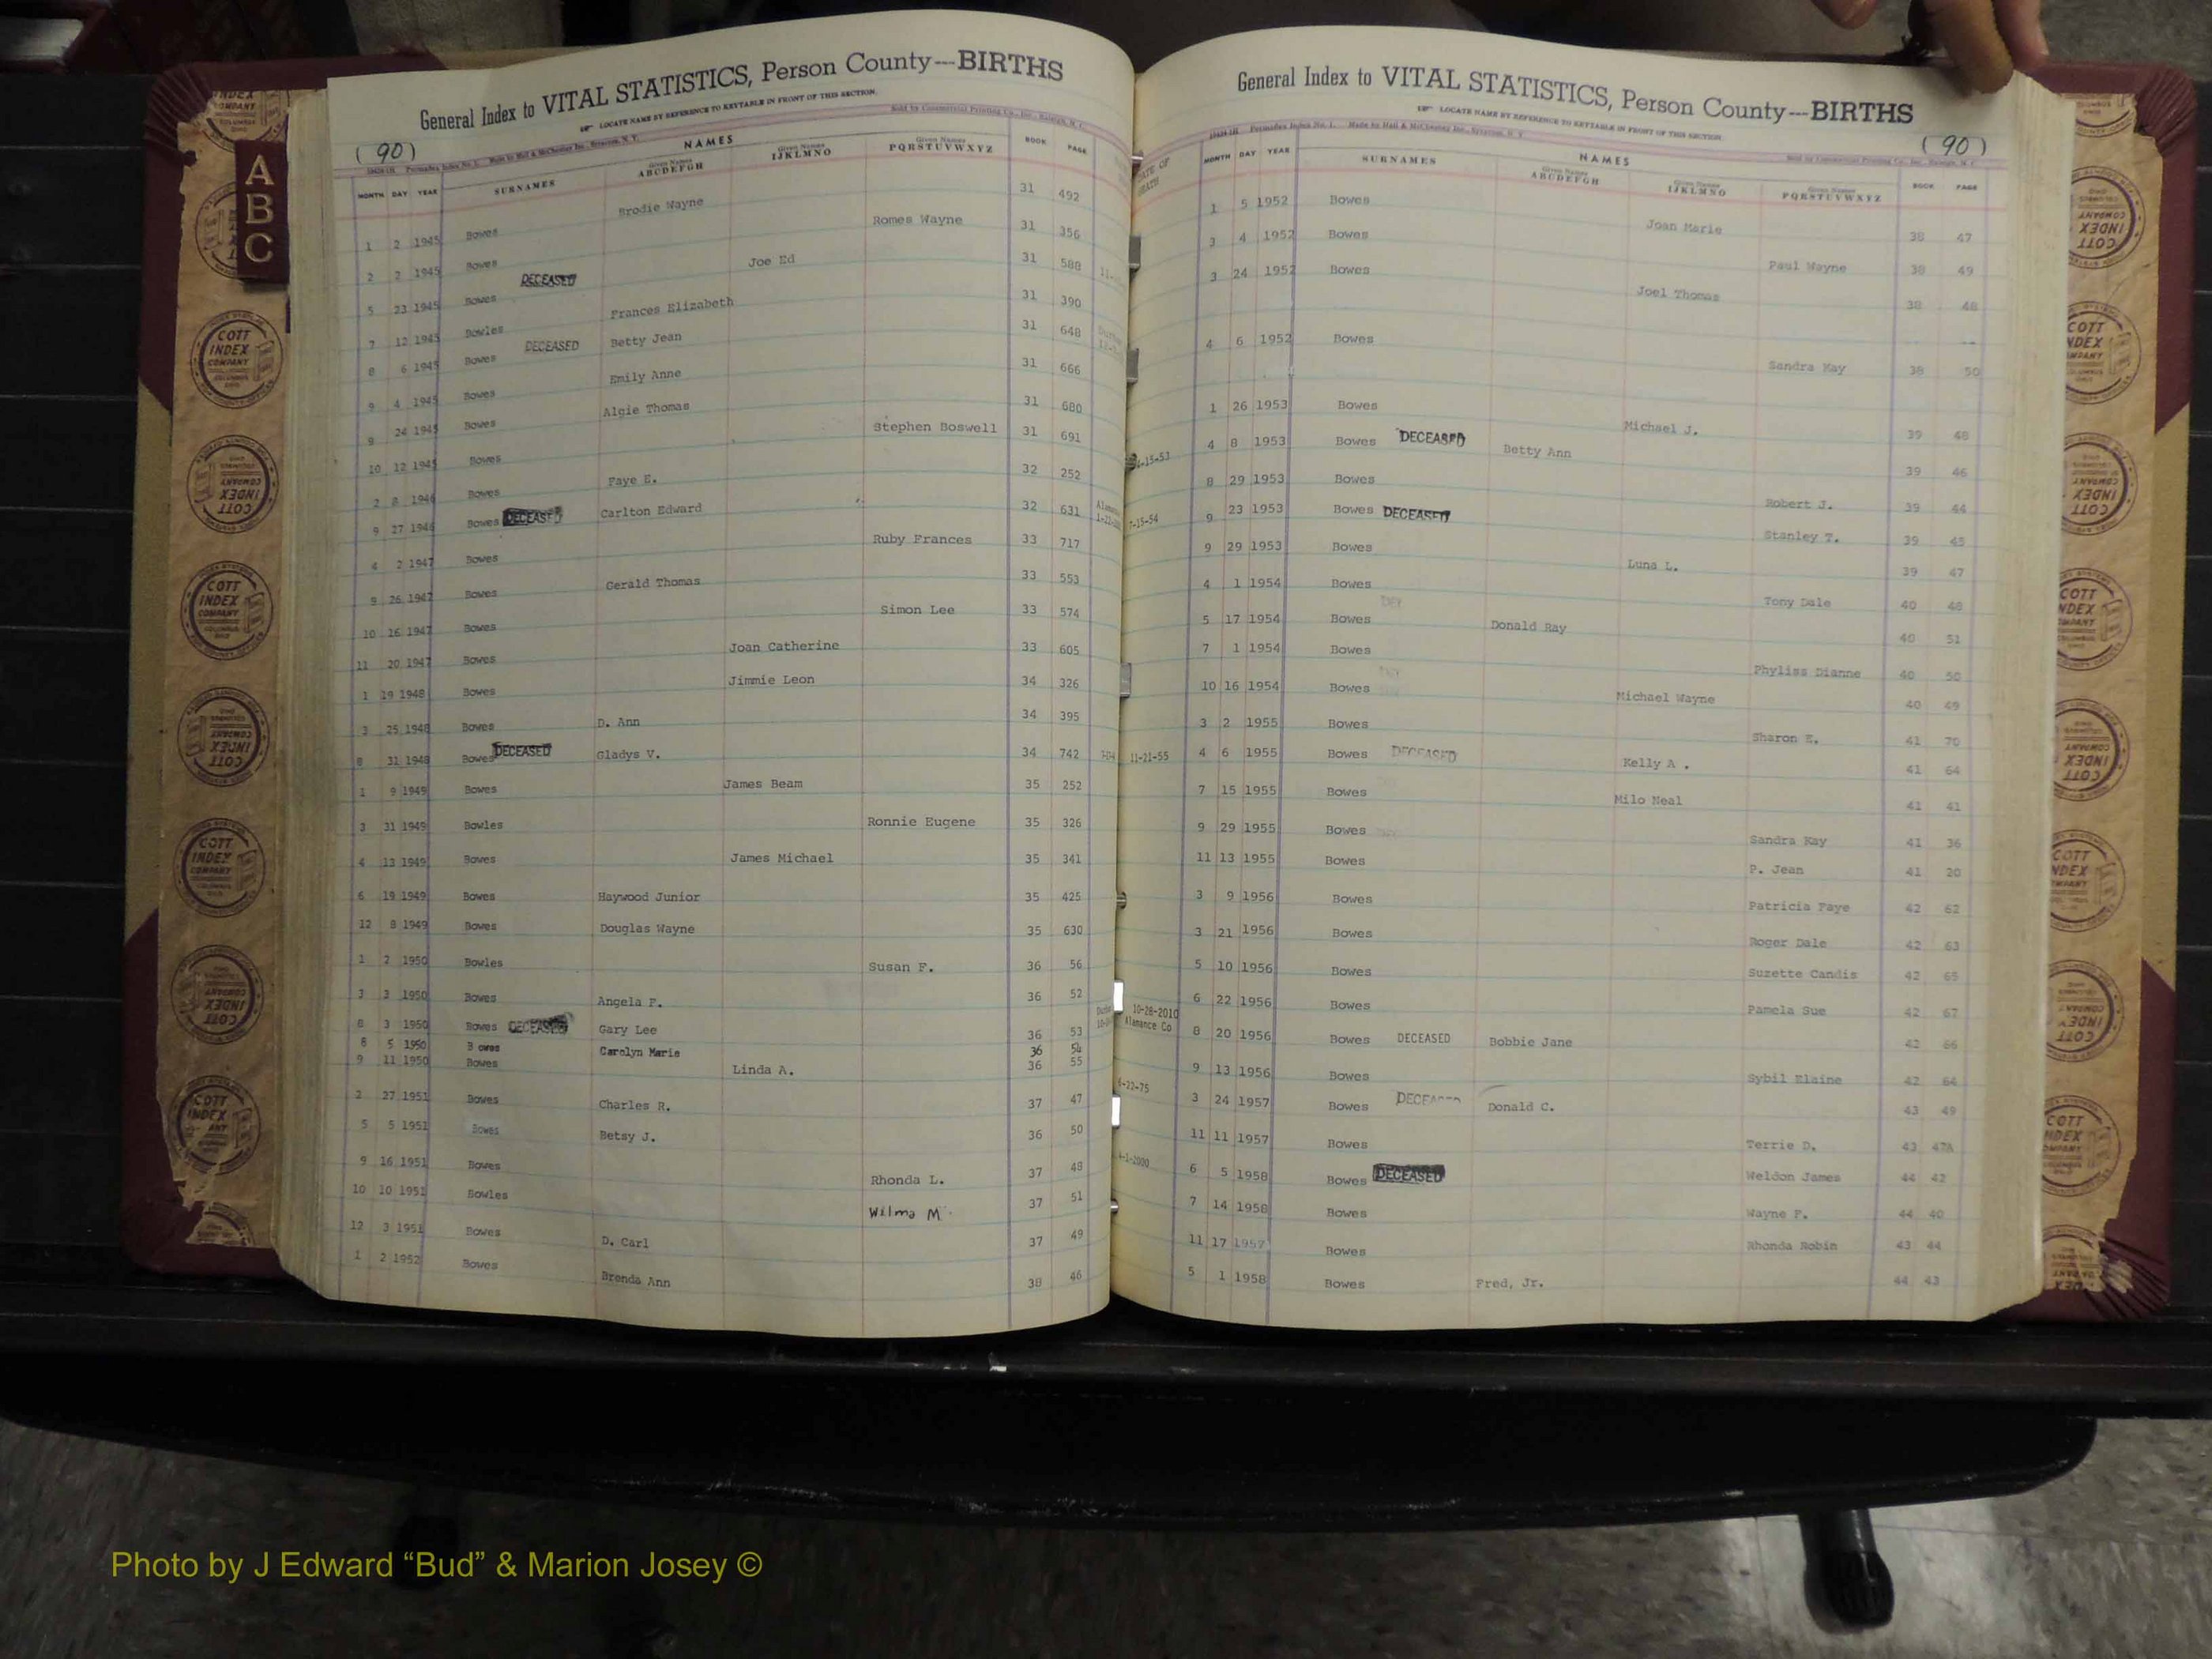 General Index to VITAL STATISTICS, Person County---BIRTHS
LOCATE NAME BY REFERENCE TO KEYTABLE IN FRONT OF THIS SECTION.
(90)
NAMES
MONTH DAY YEAR SURNAMES Given Names ABCDEFGH Given Names IJKLMNO Given Names PQRSTUVWXYZ BOOK PAGE
1 2 1945 Bowes Brodie Wayne 31 492
2 2 1945 Bowes Romes Wayne 31 356
5 23 1945 Bowes DECEASED Joe Ed 31 588
7 12 1945 Bowles Frances Elizabeth 31 390
8 6 1945 Bowes DECEASED Betty Jean 31 648
9 4 1945 Bowes Emily Anne 31 666
9 24 1945 Bowes Algie Thomas 31 680
10 12 1945 Bowes Stephen Boswell 31 691
2 8 1946 Bowes Faye E. 32 252
9 27 1946 Bowes DECEASED Carlton Edward 32 631
4 2 1947 Bowes Ruby Frances 33 717
9 26 1947 Bowes Gerald Thomas 33 553
10 16 1947 Bowes Simon Lee 33 574
11 20 1947 Bowes Joan Catherine 33 605
1 19 1948 Bowes Jimmie Leon 34 326
3 25 1948 Bowes D. Ann 34 395
8 31 1948 Bowes DECEASED Gladys V. 34 742
1 9 1949 Bowes James Beam 35 252
3 31 1949 Bowles Ronnie Eugene 35 326
4 13 1949 Bowes James Michael 35 341
6 19 1949 Bowes Haywood Junior 35 425
12 8 1949 Bowes Douglas Wayne 35 630
1 2 1950 Bowles Susan F. 36 56
3 3 1950 Bowes Angela P. 36 52
8 3 1950 Bowes DECEASED Gary Lee 36 53
8 5 1950 Bowes Carolyn Marie 36 54
9 11 1950 Bowes Linda A. 36 55
2 27 1951 Bowes Charles R. 37 47
5 5 1951 Bowes Betsy J. 36 50
9 16 1951 Bowes Rhonda L. 37 48
10 10 1951 Bowles Wilma M 37 51
12 3 1951 Bowes D. Carl 37 49
1 2 1952 Bowes Brenda Ann 38 46
General Index to VITAL STATISTICS, Person County---BIRTHS
LOCATE NAME BY REFERENCE TO KEYTABLE IN FRONT OF THIS SECTION.
(90)
NAMES
MONTH DAY YEAR SURNAMES Given Names ABCDEFGH Given Names IJKLMNO Given Names PQRSTUVWXYZ BOOK PAGE
1 5 1952 Bowes Joan Marie 38 47
3 4 1952 Bowes Paul Wayne 38 49
3 24 1952 Bowes Joel Thomas 38 48
4 6 1952 Bowes Sandra Kay 38 50
1 26 1953 Bowes Michael J. 39 48
4 8 1953 Bowes DECEASED Betty Ann 39 46
8 29 1953 Bowes Robert J. 39 44
7-15-54 9 23 1953 Bowes DECEASED Stanley T. 39 45
9 29 1953 Bowes Luna L. 39 47
4 1 1954 Bowes Tony Dale 40 48
5 17 1954 Bowes Donald Ray 40 51
7 1 1954 Bowes Phyliss Dianne 40 50
10 16 1954 Bowes Michael Wayne 40 49
3 2 1955 Bowes Sharon E. 41 70
11-21-55 4 6 1955 Bowes DECEASED Kelly A. 41 64
7 15 1955 Bowes Milo Neal 41 41
9 29 1955 Bowes Sandra Kay 41 36
11 13 1955 Bowes P. Jean 41 20
3 9 1956 Bowes Patricia Faye 42 62
3 21 1956 Bowes Roger Dale 42 63
5 10 1956 Bowes Suzette Candis 42 65
6 22 1956 Bowes Pamela Sue 42 67
10-28-2010 Alamance Co 8 20 1956 Bowes DECEASED Bobbie Jane 42 66
9 13 1956 Bowes Sybil Elaine 42 64
3 24 1957 Bowes DECEASED Donald C. 43 49
11 11 1957 Bowes Terrie D. 43 47A
6 5 1958 Bowes DECEASED Weldon James 44 42
7 14 1958 Bowes Wayne F. 44 40
11 17 1957 Bowes Rhonda Robin 43 44
5 1 1958 Bowes Fred, Jr. 44 43
A
B
C
COTT INDEX COMPANY
Photo by J Edward “Bud” & Marion Josey ©